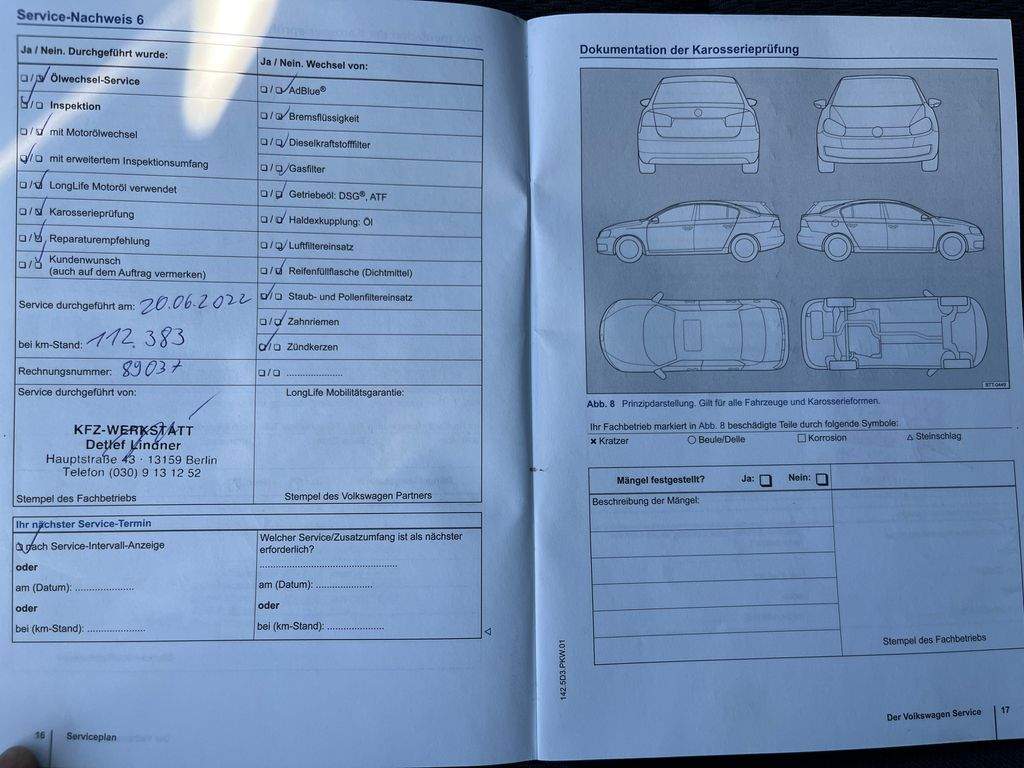 Service-Nachweis 6
Ja / Nein. Durchgeführt wurde:
Ölwechsel-Service
Inspektion
mit Motorölwechsel
mit erweitertem Inspektionsumfang
LongLife Motoröl verwendet
Karosserieprüfung
Reparaturempfehlung
Kundenwunsch
(auch auf dem Auftrag vermerken)
Service durchgeführt am: 20.06.2022
bei km-Stand: 112.383
Rechnungsnummer: 89037
Ja / Nein. Wechsel von:
AdBlue®
Bremsflüssigkeit
Dieselkraftstofffilter
Gasfilter
Getriebeöl: DSG®, ATF
Haldexkupplung: Öl
Luftfiltereinsatz
Reifenfüllflasche (Dichtmittel)
Staub- und Pollenfiltereinsatz
Zahnriemen
Zündkerzen
.....................
Service durchgeführt von:
KFZ-WERKSTATT
Detlef Lindner
Hauptstraße 43 · 13159 Berlin
Telefon (030) 9 13 12 52
Stempel des Fachbetriebs
LongLife Mobilitätsgarantie:
Stempel des Volkswagen Partners
Ihr nächster Service-Termin
nach Service-Intervall-Anzeige
oder
am (Datum): .....................
oder
bei (km-Stand): .....................
Welcher Service/Zusatzumfang ist als nächster
erforderlich?
..................................................
am (Datum): .....................
oder
bei (km-Stand): .....................
16 Serviceplan
Dokumentation der Karosserieprüfung
BTT-0449
Abb. 8 Prinzipdarstellung. Gilt für alle Fahrzeuge und Karosserieformen.
Ihr Fachbetrieb markiert in Abb. 8 beschädigte Teile durch folgende Symbole:
× Kratzer ○ Beule/Delle □ Korrosion △ Steinschlag
Mängel festgestellt? Ja: Nein:
Beschreibung der Mängel:
Stempel des Fachbetriebs
142.5D3.PKW.01
Der Volkswagen Service 17